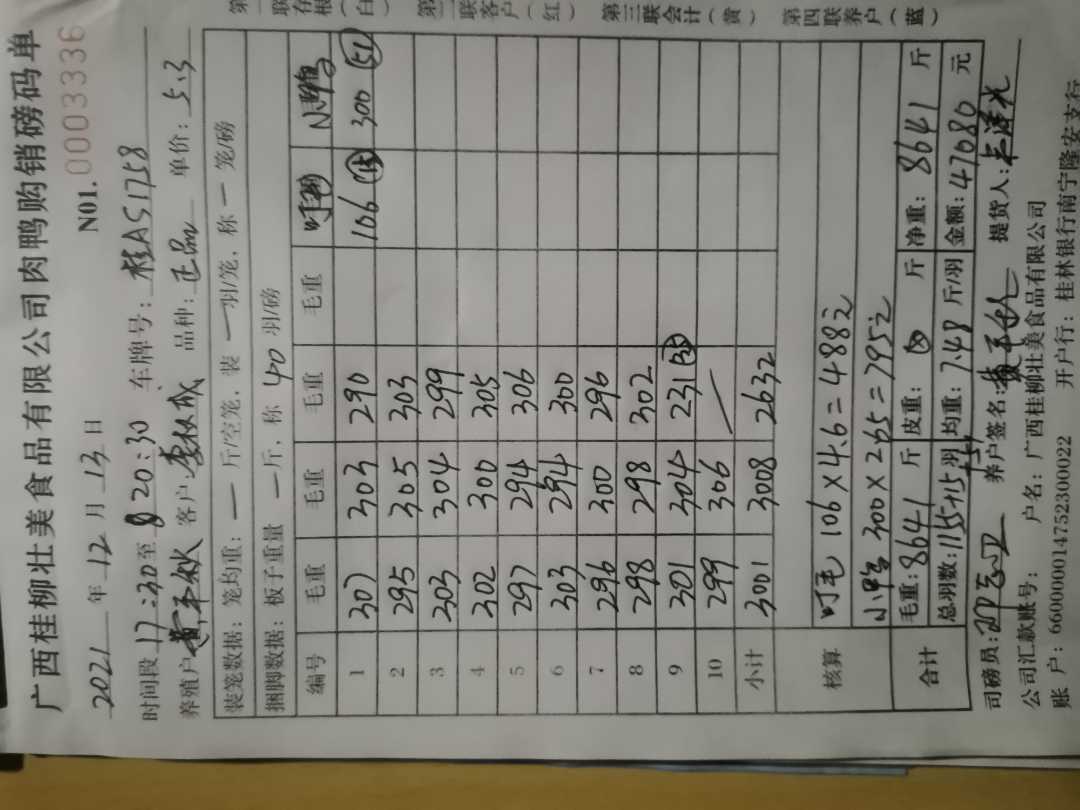 广西桂柳壮美食品有限公司肉鸭购销磅码单
2021 年 12 月 13 日 N01. 0003336
时间段 17:30至 20:30 车牌号: 桂AS1758
养殖户 客户: 品种: 正品 单价: 5.3
装笼数据: 笼均重: — 斤/空笼, 装 — 羽/笼, 称 — 笼/磅
捆脚数据: 板子重量 — 斤, 称 40 羽/磅
编号 毛重 毛重 毛重 毛重
1 307 303 290 106 (15) 300 (51)
2 295 305 303
3 303 304 299
4 302 300 305
5 297 294 306
6 303 294 300
7 296 300 296
8 298 298 302
9 301 304 231
10 299 306 —
小计 3001 3008 2632
核算 叮毛 106×4.6=488
300×2.65=795
合计 毛重: 8641 斤 皮重: 斤 净重: 8641 斤
总羽数: 羽 均重: 7.48 斤/羽 金额: 47080 元
司磅员: 养户签名: 提货人:
公司汇款账号: 户名: 广西桂柳壮美食品有限公司
账 户: 660000014752300022 开户行: 桂林银行南宁隆安支行
第一联存根(白) 第二联客户(红) 第三联会计(黄) 第四联养户(蓝)